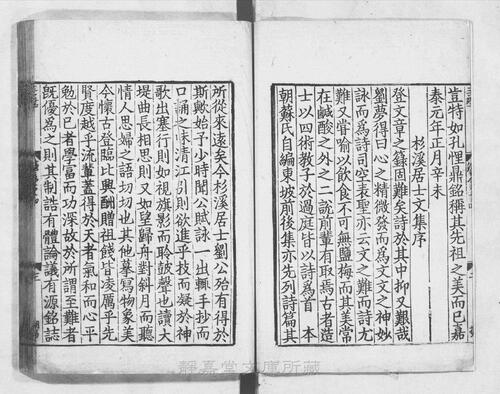 豈特如孔悝鼎銘稱其先祖之美而已嘉
泰元年正月辛未
杉溪居士文集序
登文章之籙固難矣詩於其中抑又艱哉
劉夢得曰心之精微發而爲文文之神妙
詠而爲詩司空表聖亦云文之難而詩尤
難又嘗喻以飲食不可無鹽梅而其美常
在鹹酸之外之二說前輩有取焉古者造
士以四術教子於過庭皆以詩爲首 本
朝蘇氏自編東坡前後集亦先列詩篇其
所從來遠矣今杉溪居士劉公殆有得於
斯歟始予少時聞公賦詠一出輒手抄而
口誦之味清江引則欲進乎技而凝於神
歌出塞行則如視旗影而聆鼓聲也讀大
堤曲長相思則又如望歸舟對斜月而聽
情人思婦之語切切也其他摹寫物象美
今懷古登臨比興酬贈祖餞皆凌厲乎先
賢度越乎流輩蓋得於天者氣和而心平
勉於已者學富而功深故於所謂至難者
既優爲之則其制誥有體論議有源銘誌
靜嘉堂文庫所藏